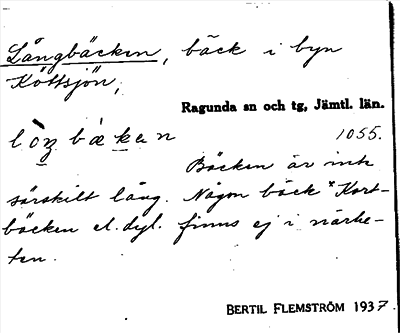 Långbäcken, bäck i byn
Köttsjön,
Ragunda sn och tg, Jämtl. län.
lòŋbækan 1055.
Bäcken är inte
särskilt lång. Någon bäck *Kort-
bäcken el. dyl. finns ej i närhe-
ten.
BERTIL FLEMSTRÖM 1937.